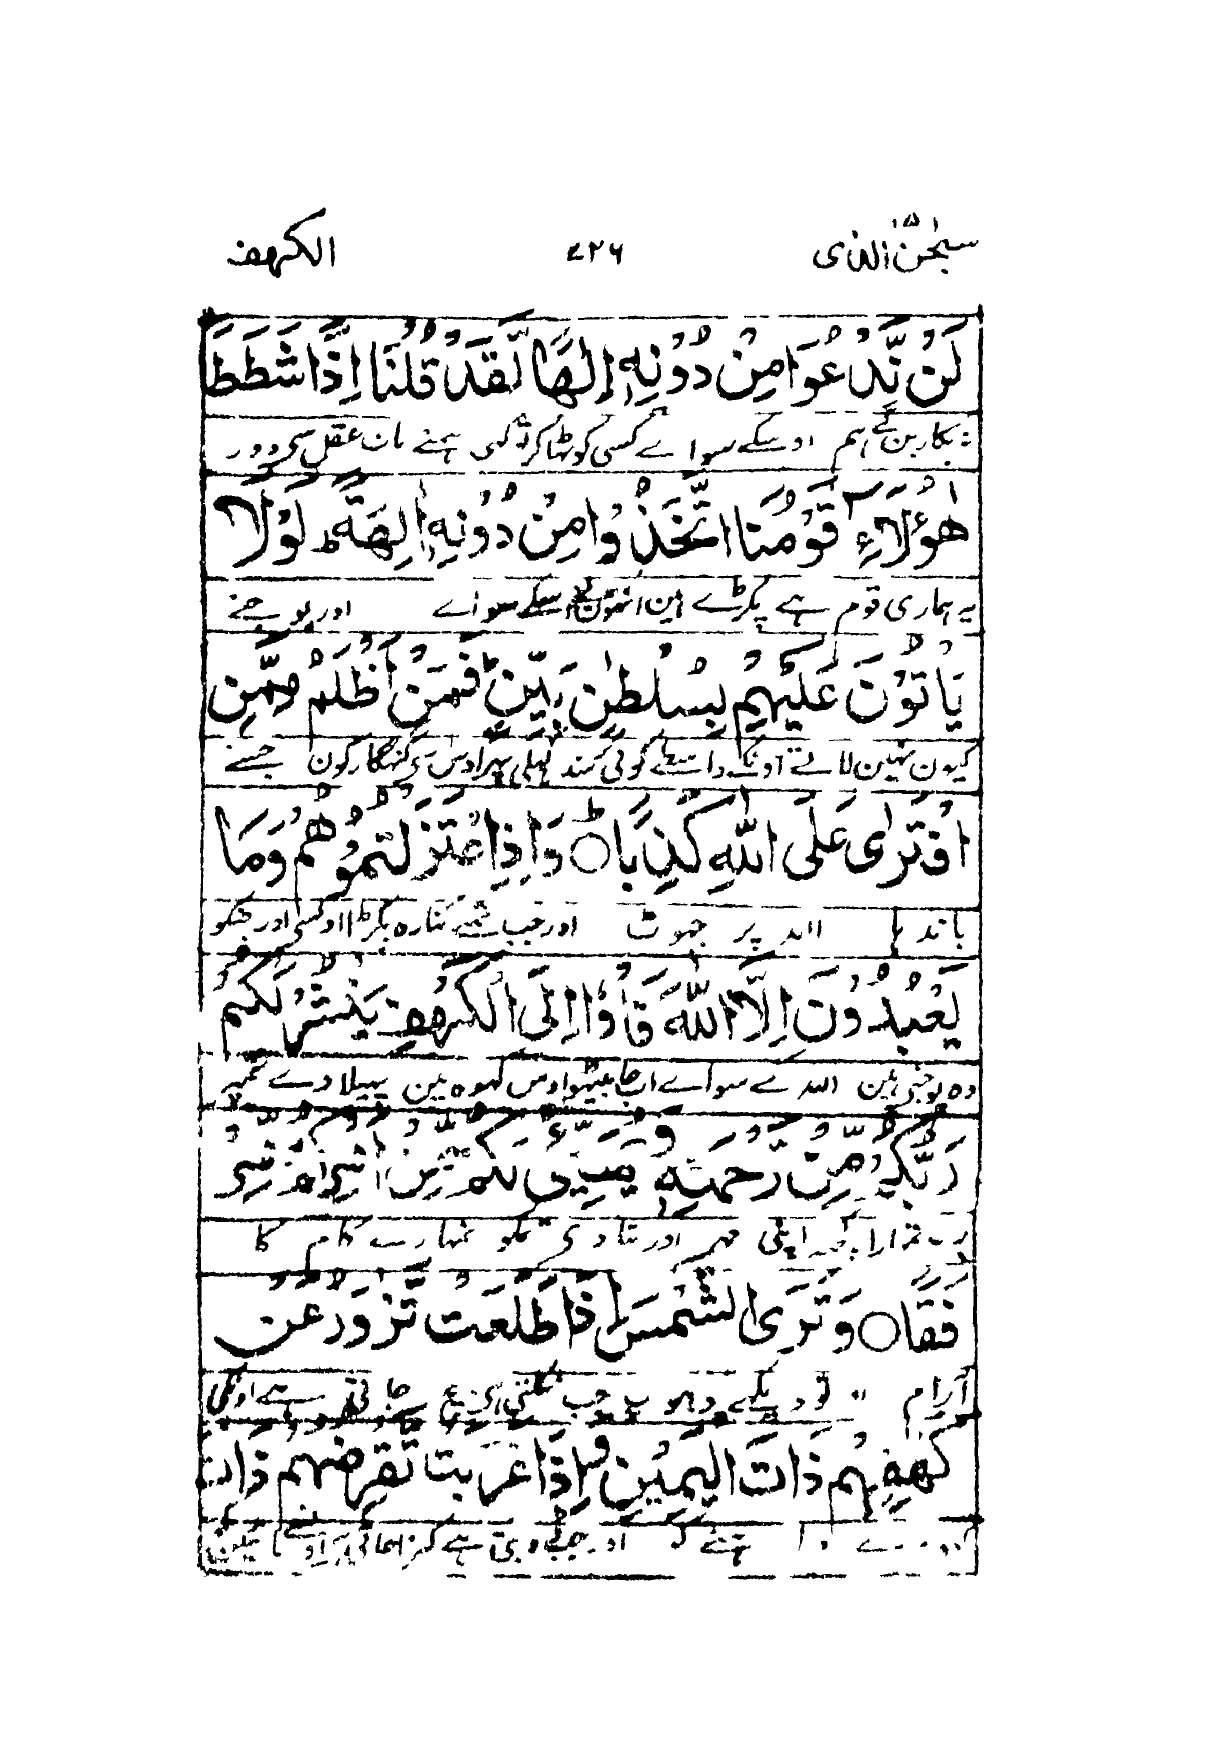 سبحٰن الذی ۱۵ ۴۲۶ الکهف
لَنْ نَّدْعُوَا مِنْ دُوْنِهٖ اِلٰهًا لَّقَدْ قُلْنَا اِذًا شَطَطًا
نہ پکارین گے ہم اوسکے سواے کسی کو ٹھاکر تو کہی ہمنے بات عقل سی دور
هٰؤُلَآءِ قَوْمُنَا اتَّخَذُوْا مِنْ دُوْنِهٖ اٰلِهَةً ط لَوْلَا
یہ ہماری قوم ہے پکڑے ہین انہون نے اسکے سواے اور پوجنے
يَاْتُوْنَ عَلَيْهِمْ بِسُلْطٰنٍ بَيِّنٍ ط فَمَنْ اَظْلَمُ مِمَّنِ
کیون نہین لاتے اونکے واسطے کوئی سند کہلی پہر اوس سی گنہگار کون جسنے
افْتَرٰى عَلَى اللّٰهِ كَذِبًا ط ○ وَاِذِ اعْتَزَلْتُمُوْهُمْ وَمَا
باندہا اللہ پر جہوٹ اور جب تمنے کنارہ پکڑا اونسی اور جنکو
يَعْبُدُوْنَ اِلَّا اللّٰهَ فَاْوٗا اِلَى الْكَهْفِ يَنْشُرْ لَكُمْ
وہ پوجتی ہین اللہ کے سواے اب جا بیٹھو اوس کہوہ مین پہیلا دے تمپر
رَبُّكُمْ مِّنْ رَّحْمَتِهٖ وَيُهَيِّئْ لَكُمْ مِّنْ اَمْرِكُمْ مِّرْ
رب تمہارا کچہ اپنی مہر اور بنا دی تمکو تمہارے کام کا
فَقًا ○ وَتَرَى الشَّمْسَ اِذَا طَلَعَتْ تَّزٰوَرُ عَنْ
آرام اور تو دیکہے دہوپ جب نکلتی ہی بچ جاتی ہے اونکی
كَهْفِهِمْ ذَاتَ الْيَمِيْنِ وَاِذَا غَرَبَتْ تَّقْرِضُهُمْ ذَاتَ
داہنے کو اور جب ڈوبتی ہے کترا جاتی ہے اونسے بائین